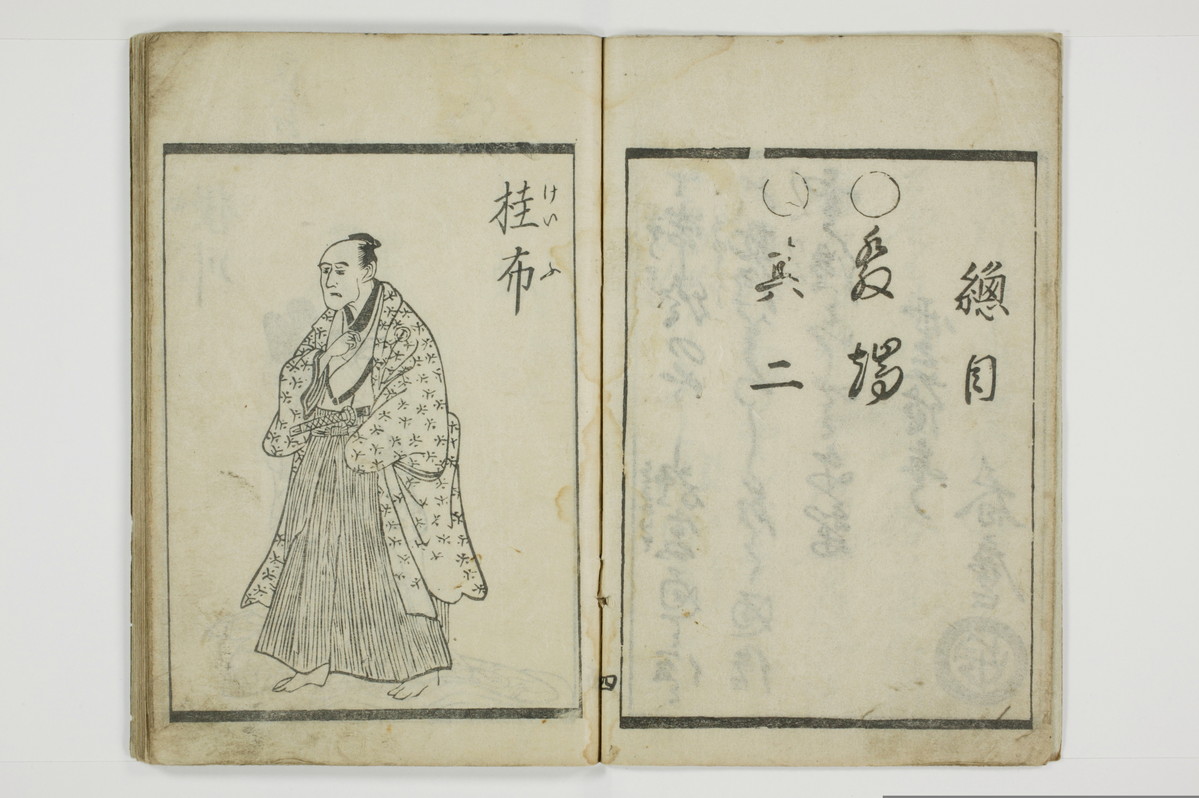 總目
○發端
○其二
桂布
けいふ
四